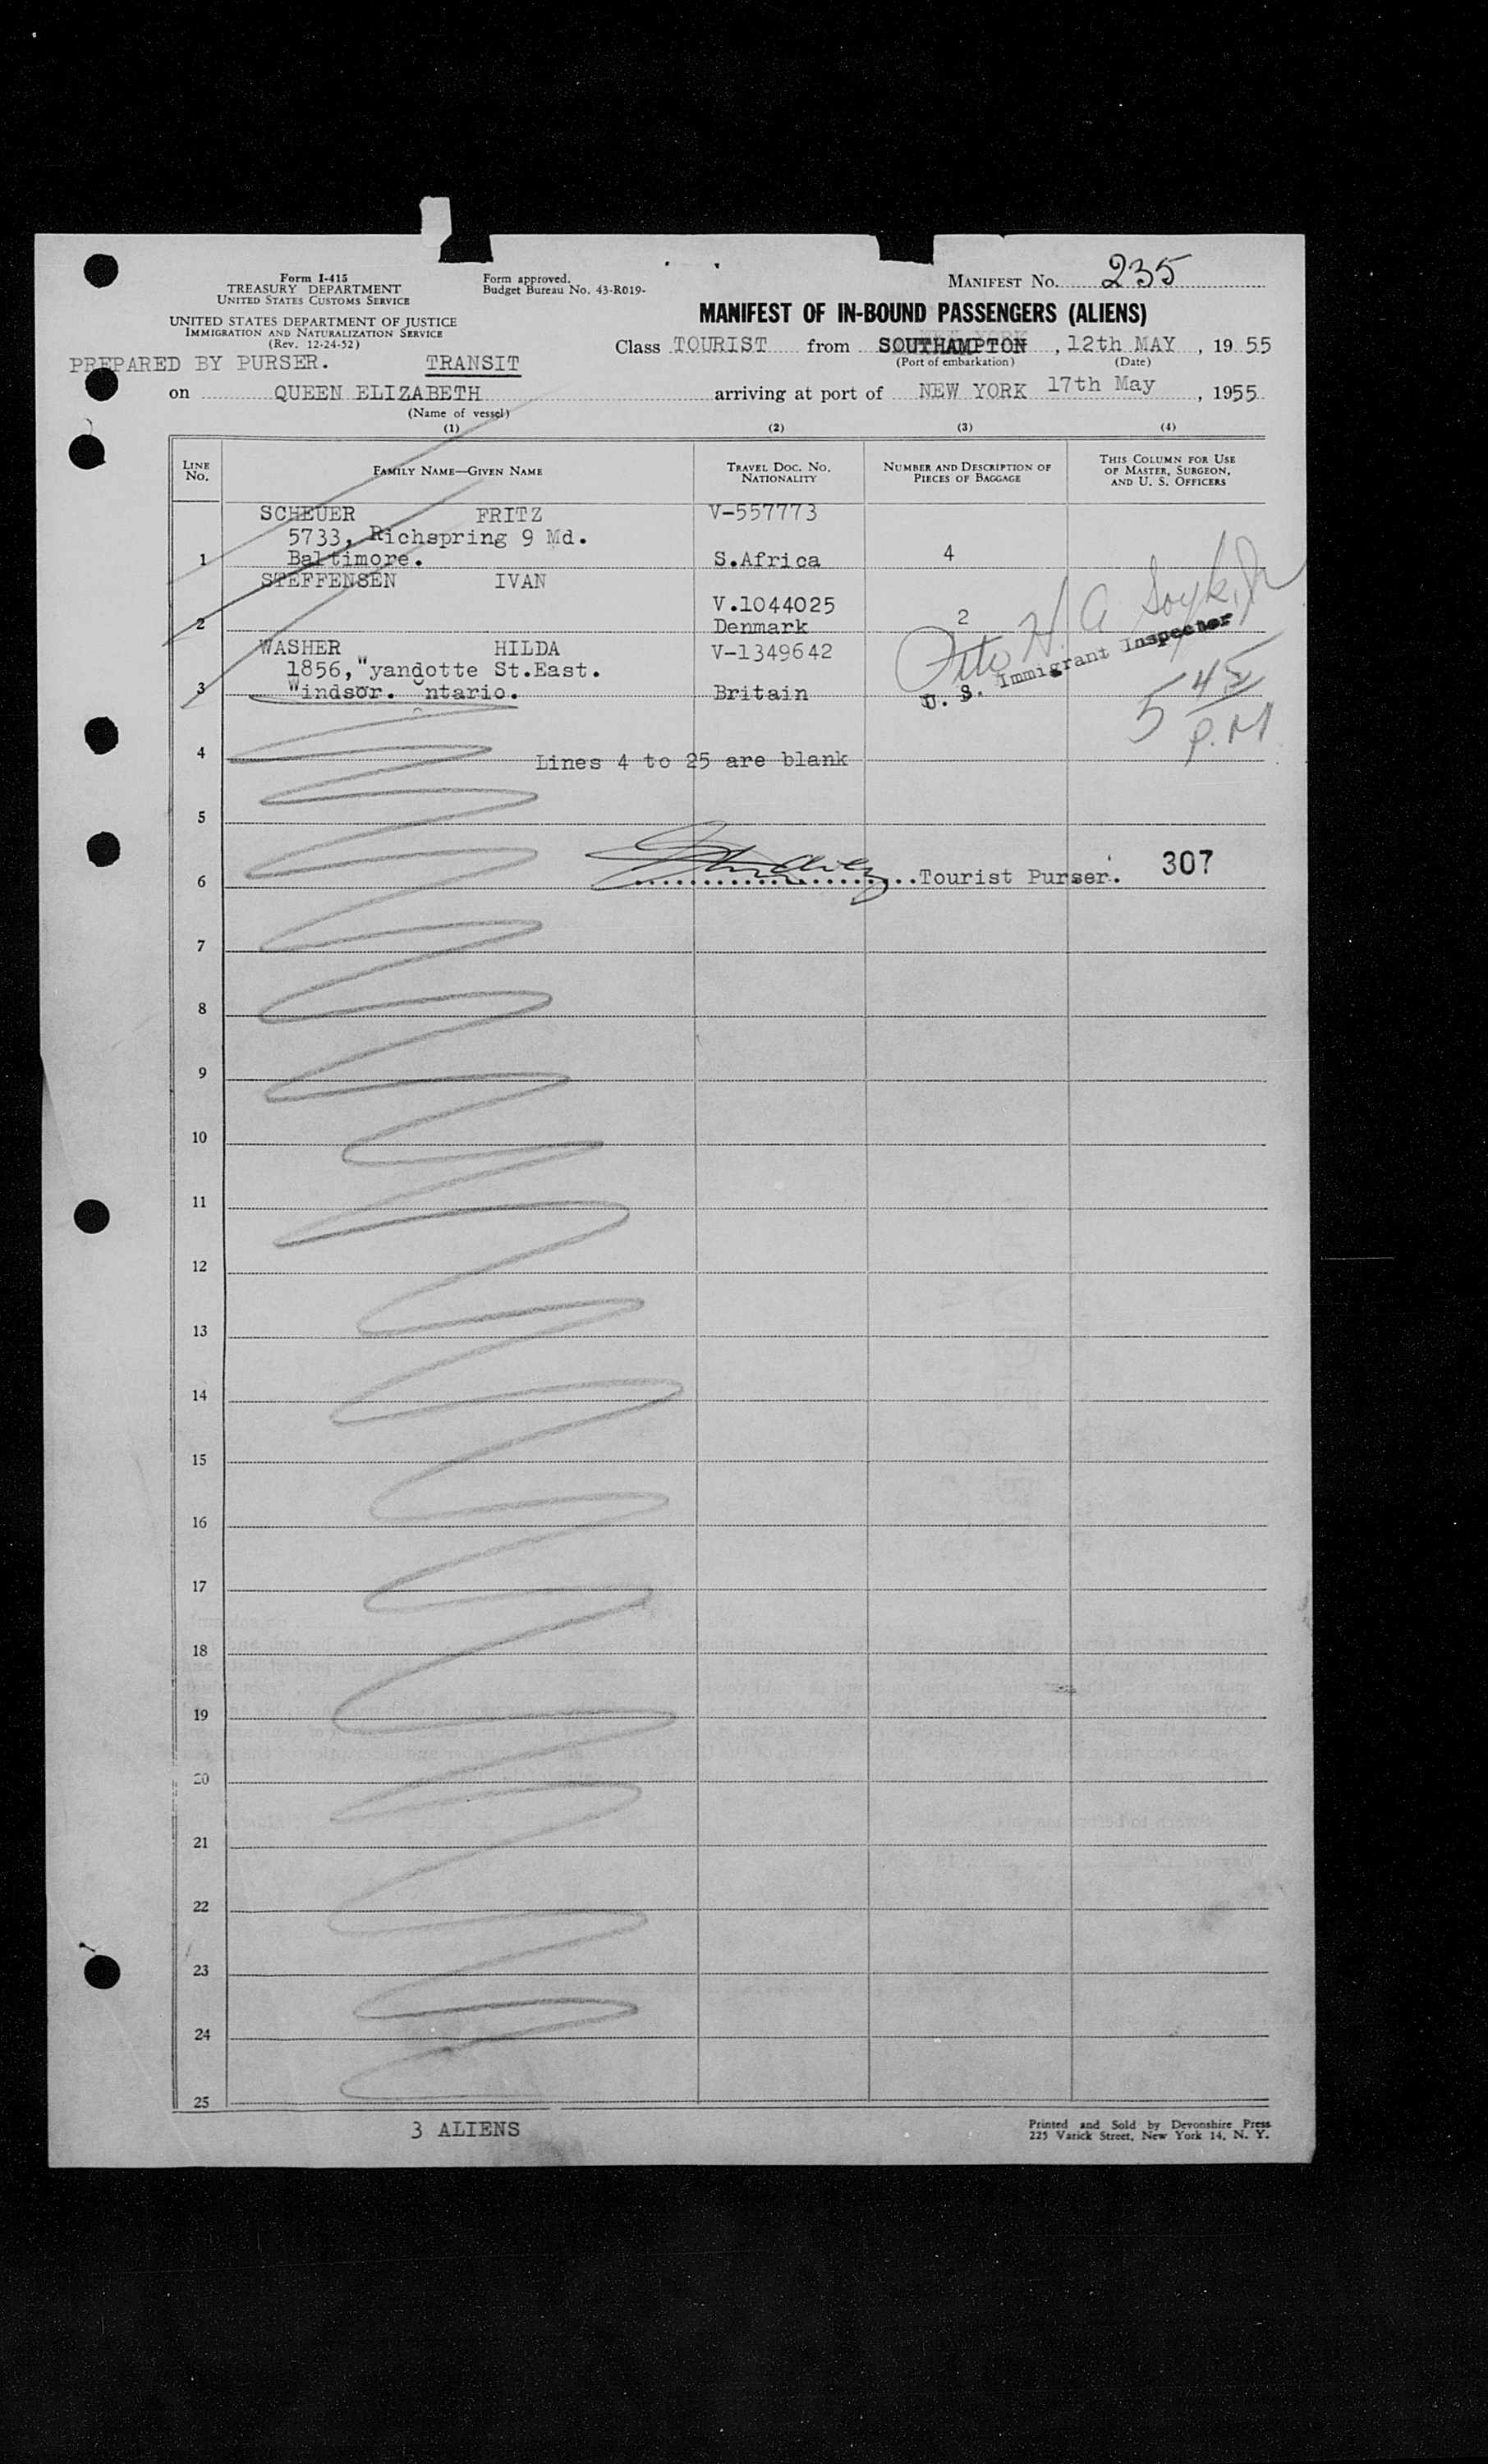 Form I-415
TREASURY DEPARTMENT
UNITED STATES CUSTOMS SERVICE
UNITED STATES DEPARTMENT OF JUSTICE
IMMIGRATION AND NATURALIZATION SERVICE
(Rev. 12-24-52)
Form approved.
Budget Bureau No. 43-R019-
MANIFEST NO. 235
MANIFEST OF IN-BOUND PASSENGERS (ALIENS)
Class TOURIST from SOUTHAMPTON, 12th MAY, 1955
(Port of embarkation) (Date)
PREPARED BY PURSER. TRANSIT
on QUEEN ELIZABETH arriving at port of NEW YORK 17th May, 1955
(Name of vessel)
(1) (2) (3) (4)
LINE NO. FAMILY NAME—GIVEN NAME TRAVEL DOC. NO. NATIONALITY NUMBER AND DESCRIPTION OF PIECES OF BAGGAGE THIS COLUMN FOR USE OF MASTER, SURGEON, AND U. S. OFFICERS
SCHEUER FRITZ V-557773
5733, Richspring 9 Md.
1 Baltimore. S.Africa 4
STEFFENSEN IVAN
V.1044025
2 Denmark 2
WASHER HILDA V-1349642
1856, "yandotte St.East.
3 "indsor. ntario. Britain
H. A.
U. S. Immigrant Inspector
5 45
P.M
4 Lines 4 to 25 are blank
5
6 Tourist Purser. 307
7
8
9
10
11
12
13
14
15
16
17
18
19
20
21
22
23
24
25
3 ALIENS
Printed and Sold by Devonshire Press
225 Varick Street, New York 14, N. Y.